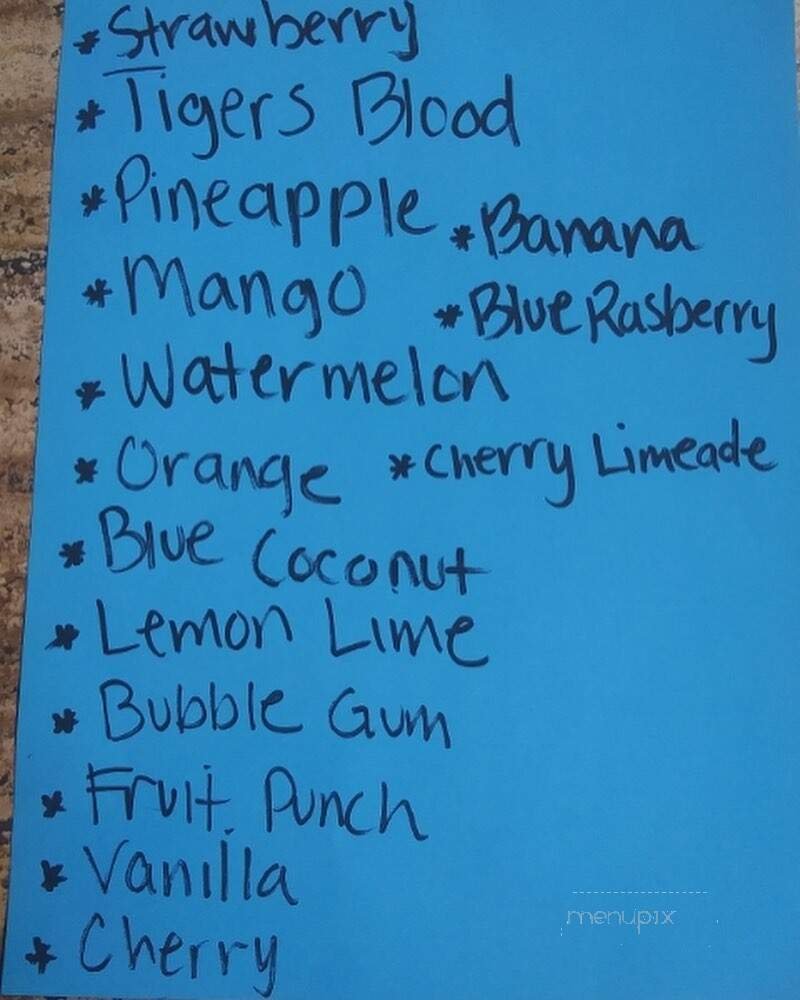 * Strawberry
* Tigers Blood
* Pineapple
* Banana
* Mango
* Blue Rasberry
* Watermelon
* Orange
* Cherry Limeade
* Blue Coconut
* Lemon Lime
* Bubble Gum
* Fruit Punch
* Vanilla
* Cherry
menupix